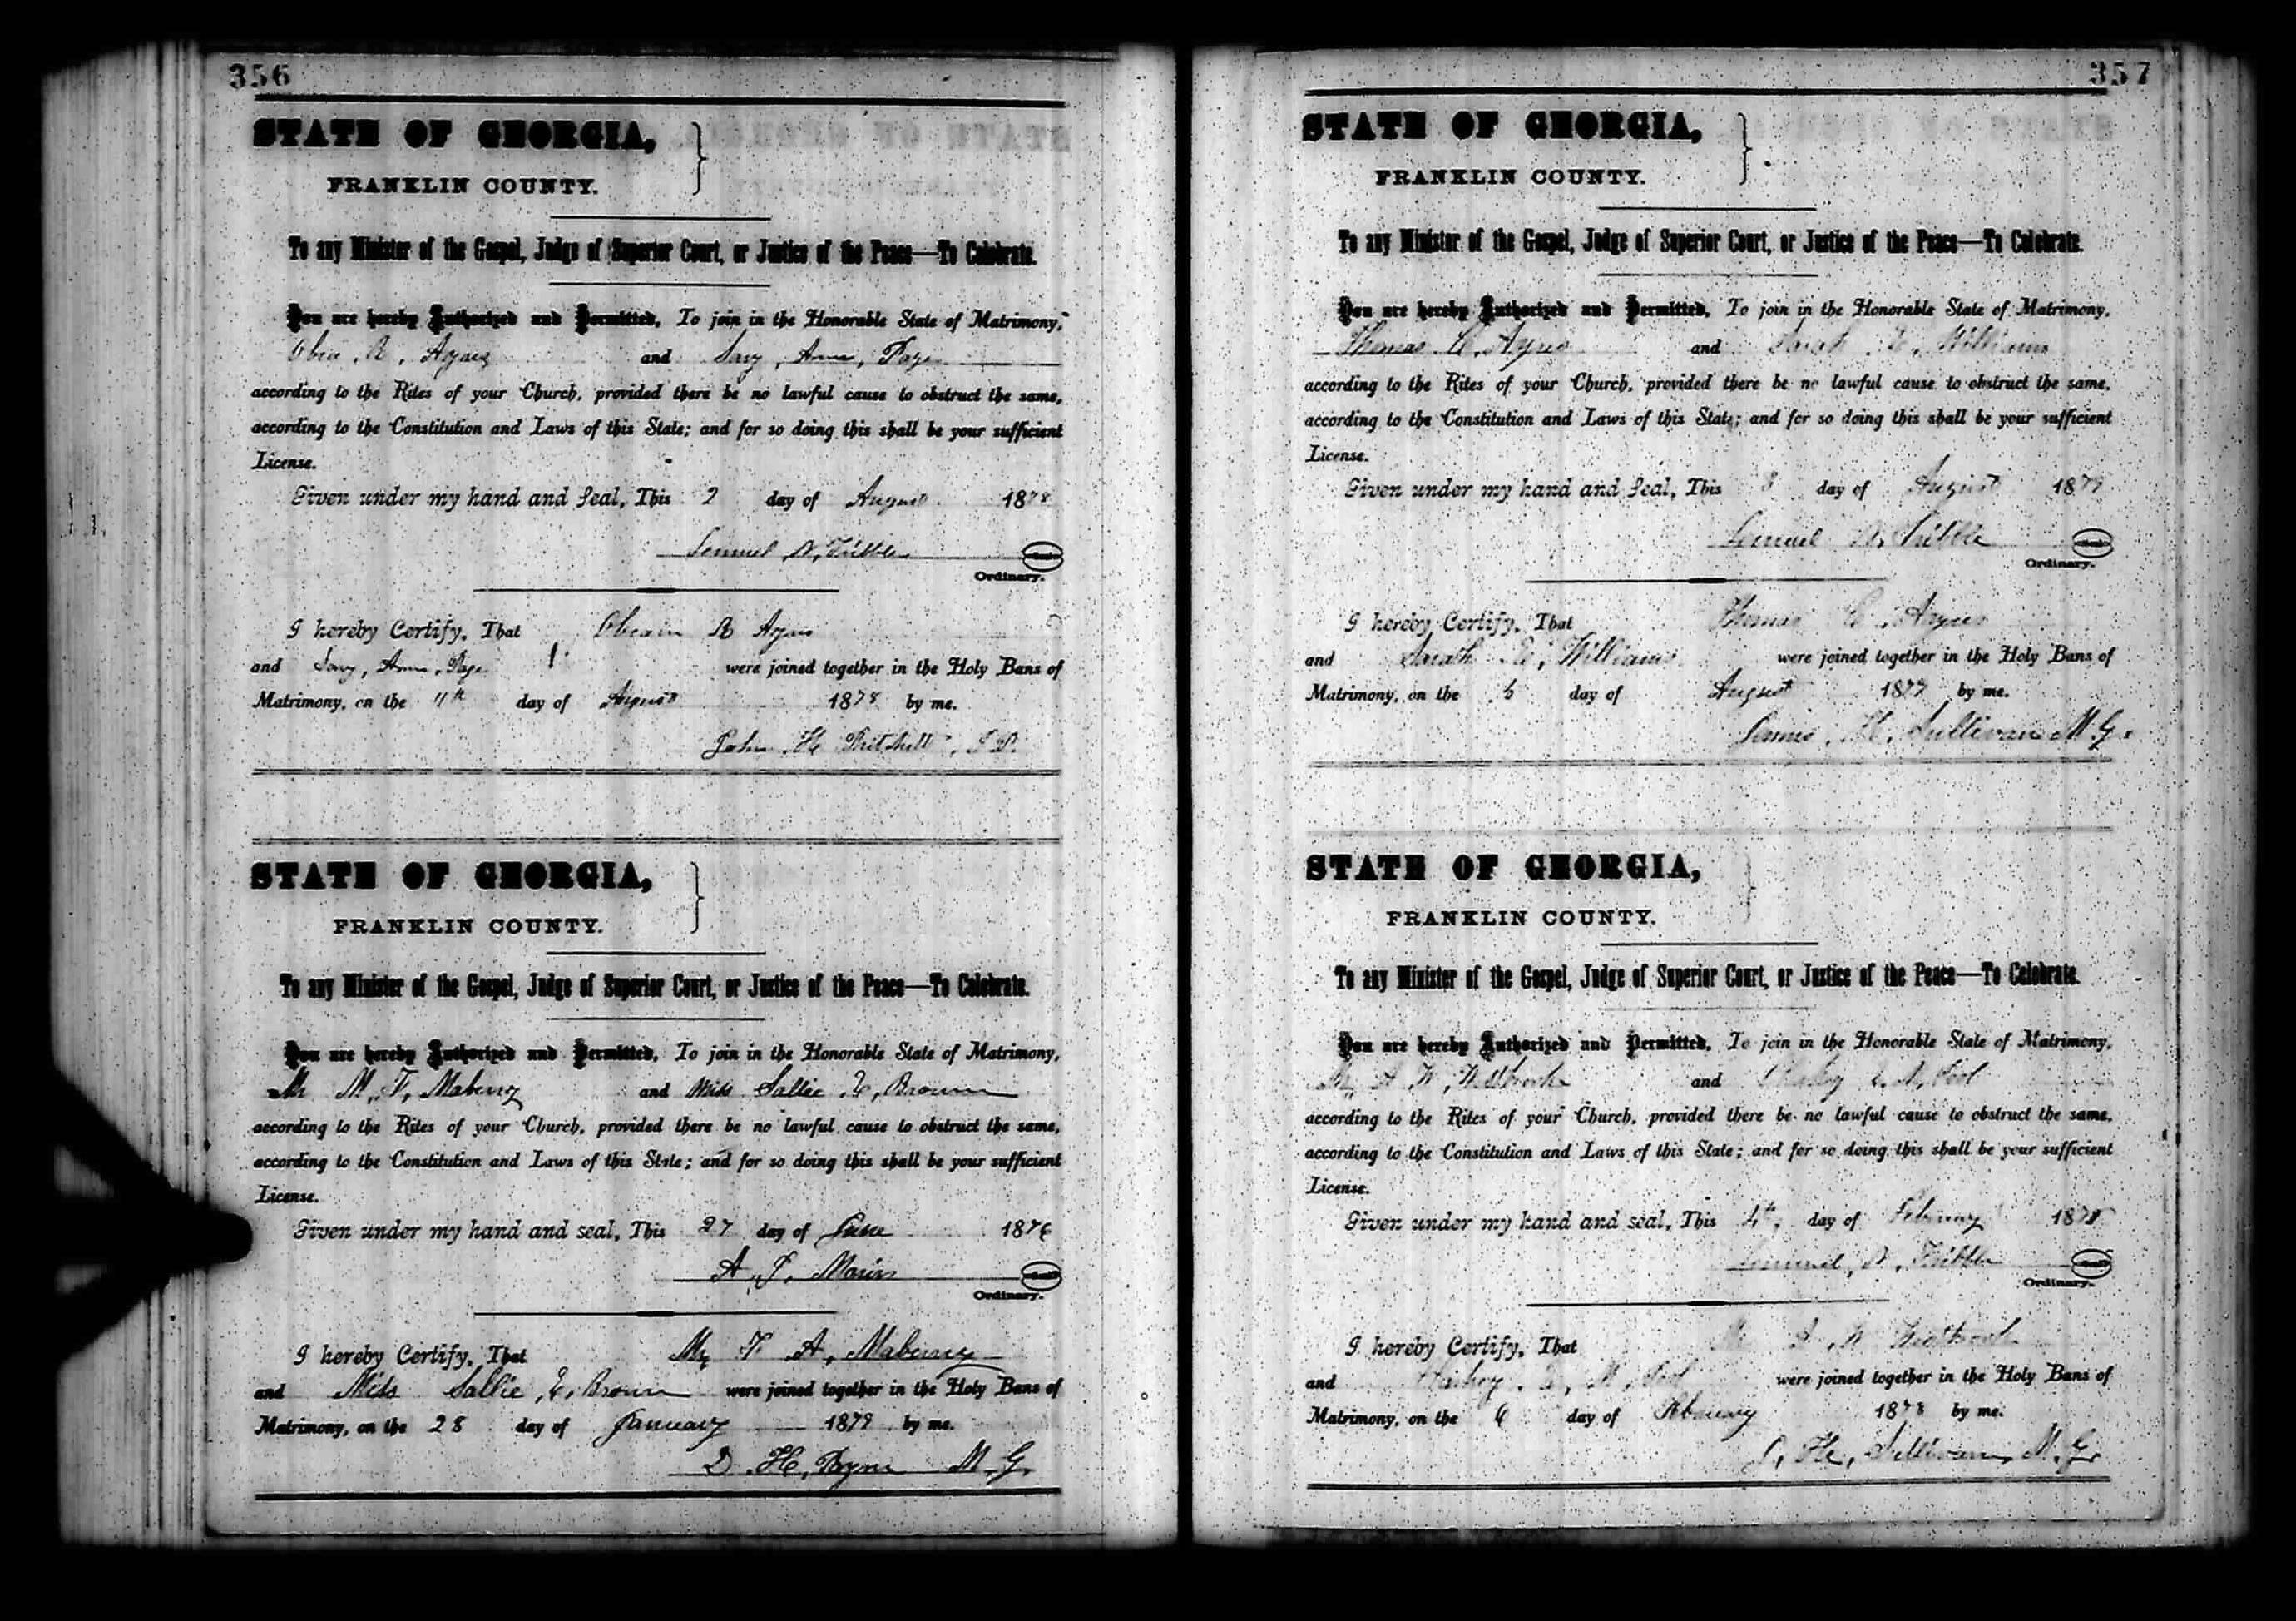 356
STATE OF GEORGIA,
FRANKLIN COUNTY.
To any Minister of the Gospel, Judge of Superior Court, or Justice of the Peace—To Celebrate.
You are hereby Authorized and Permitted, To join in the Honorable State of Matrimony,
R, and Anna, Page
according to the Rites of your Church, provided there be no lawful cause to obstruct the same,
according to the Constitution and Laws of this State; and for so doing this shall be your sufficient
License.
Given under my hand and Seal, This 2 day of August 1878
Samuel Tribble
Ordinary.
I hereby Certify, That
and Anna, Page were joined together in the Holy Bans of
Matrimony, on the day of August 1878 by me.
John H
STATE OF GEORGIA,
FRANKLIN COUNTY.
To any Minister of the Gospel, Judge of Superior Court, or Justice of the Peace—To Celebrate.
You are hereby Authorized and Permitted, To join in the Honorable State of Matrimony,
Mr M, F, Maberry and Miss Sallie E, Brown
according to the Rites of your Church, provided there be no lawful cause to obstruct the same,
according to the Constitution and Laws of this State; and for so doing this shall be your sufficient
License.
Given under my hand and seal, This 27 day of June 1876
A,
Ordinary.
I hereby Certify, That Mr F A, Maberry
and Miss Sallie, E, Brown were joined together in the Holy Bans of
Matrimony, on the 28 day of January 1879 by me.
D H, M. G.
357
STATE OF GEORGIA,
FRANKLIN COUNTY.
To any Minister of the Gospel, Judge of Superior Court, or Justice of the Peace—To Celebrate.
You are hereby Authorized and Permitted, To join in the Honorable State of Matrimony,
Thomas C, Ayres and Sarah E, Williams
according to the Rites of your Church, provided there be no lawful cause to obstruct the same,
according to the Constitution and Laws of this State; and for so doing this shall be your sufficient
License.
Given under my hand and Seal, This day of August 1879
Samuel Tribble
Ordinary.
I hereby Certify, That Thomas C, Ayres
and Sarah E, Williams were joined together in the Holy Bans of
Matrimony, on the day of August 1879 by me.
H, Sullivan M. G.
STATE OF GEORGIA,
FRANKLIN COUNTY.
To any Minister of the Gospel, Judge of Superior Court, or Justice of the Peace—To Celebrate.
You are hereby Authorized and Permitted, To join in the Honorable State of Matrimony,
and
according to the Rites of your Church, provided there be no lawful cause to obstruct the same,
according to the Constitution and Laws of this State; and for so doing this shall be your sufficient
License.
Given under my hand and seal, This 4th, day of February 1878
Samuel Tribble
Ordinary.
I hereby Certify, That
and were joined together in the Holy Bans of
Matrimony, on the 6 day of February 1878 by me.
H, Sullivan, M. G.